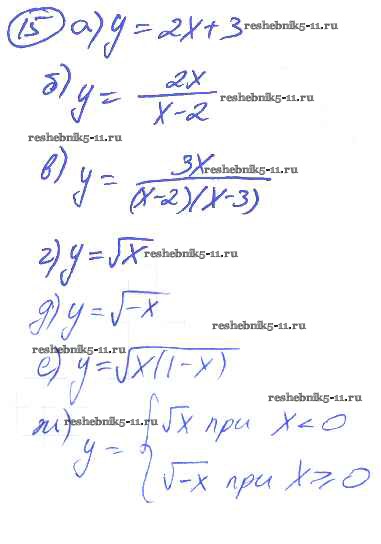 15 а) y = 2x + 3 reshebnik5-11.ru
б) y = 2x / (x - 2) reshebnik5-11.ru
reshebnik5-11.ru
в) y = 3x / ((x-2)(x-3)) reshebnik5-11.ru
г) y = √x reshebnik5-11.ru
д) y = √-x
reshebnik5-11.ru
reshebnik5-11.ru
е) y = √x(1-x)
reshebnik5-11.ru
ж) y = { √x при x < 0 reshebnik5-11.ru
√-x при x ⩾ 0